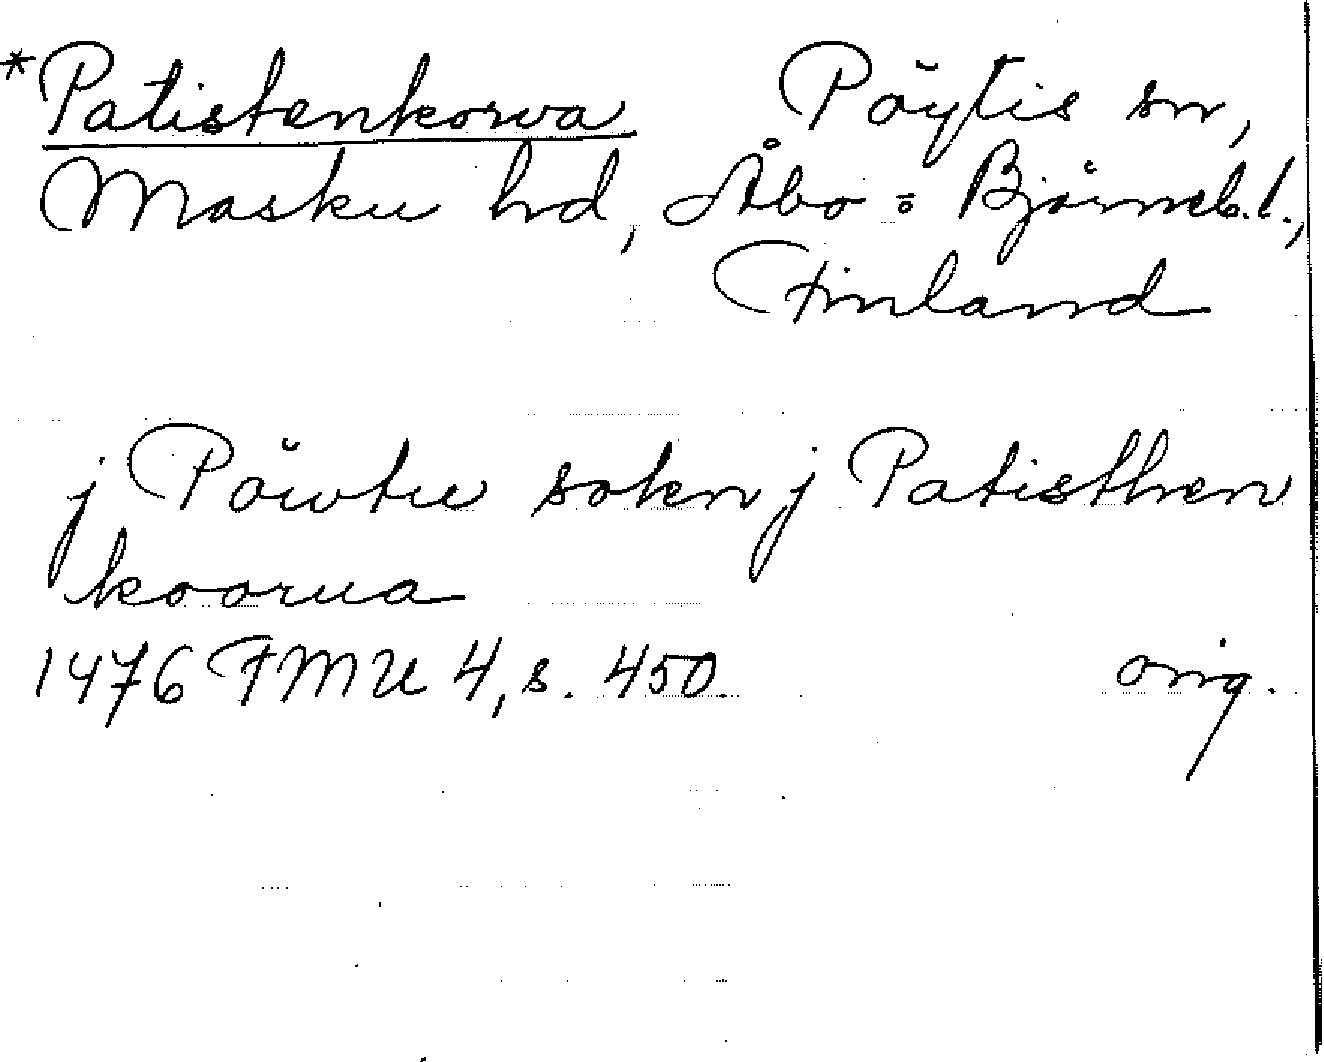 *Patistenkorva Pöytis sn,
Masku hd, Åbo = Björneb. l.,
Finland
j Pöwtu sokn j Patisthen
koorua
1476 FMU 4, s. 450. orig.